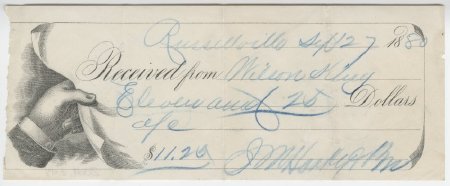 Russellville Sept 27 1880
Received from Wilson King
Eleven and x 20 Dollars
a/c
$11.20